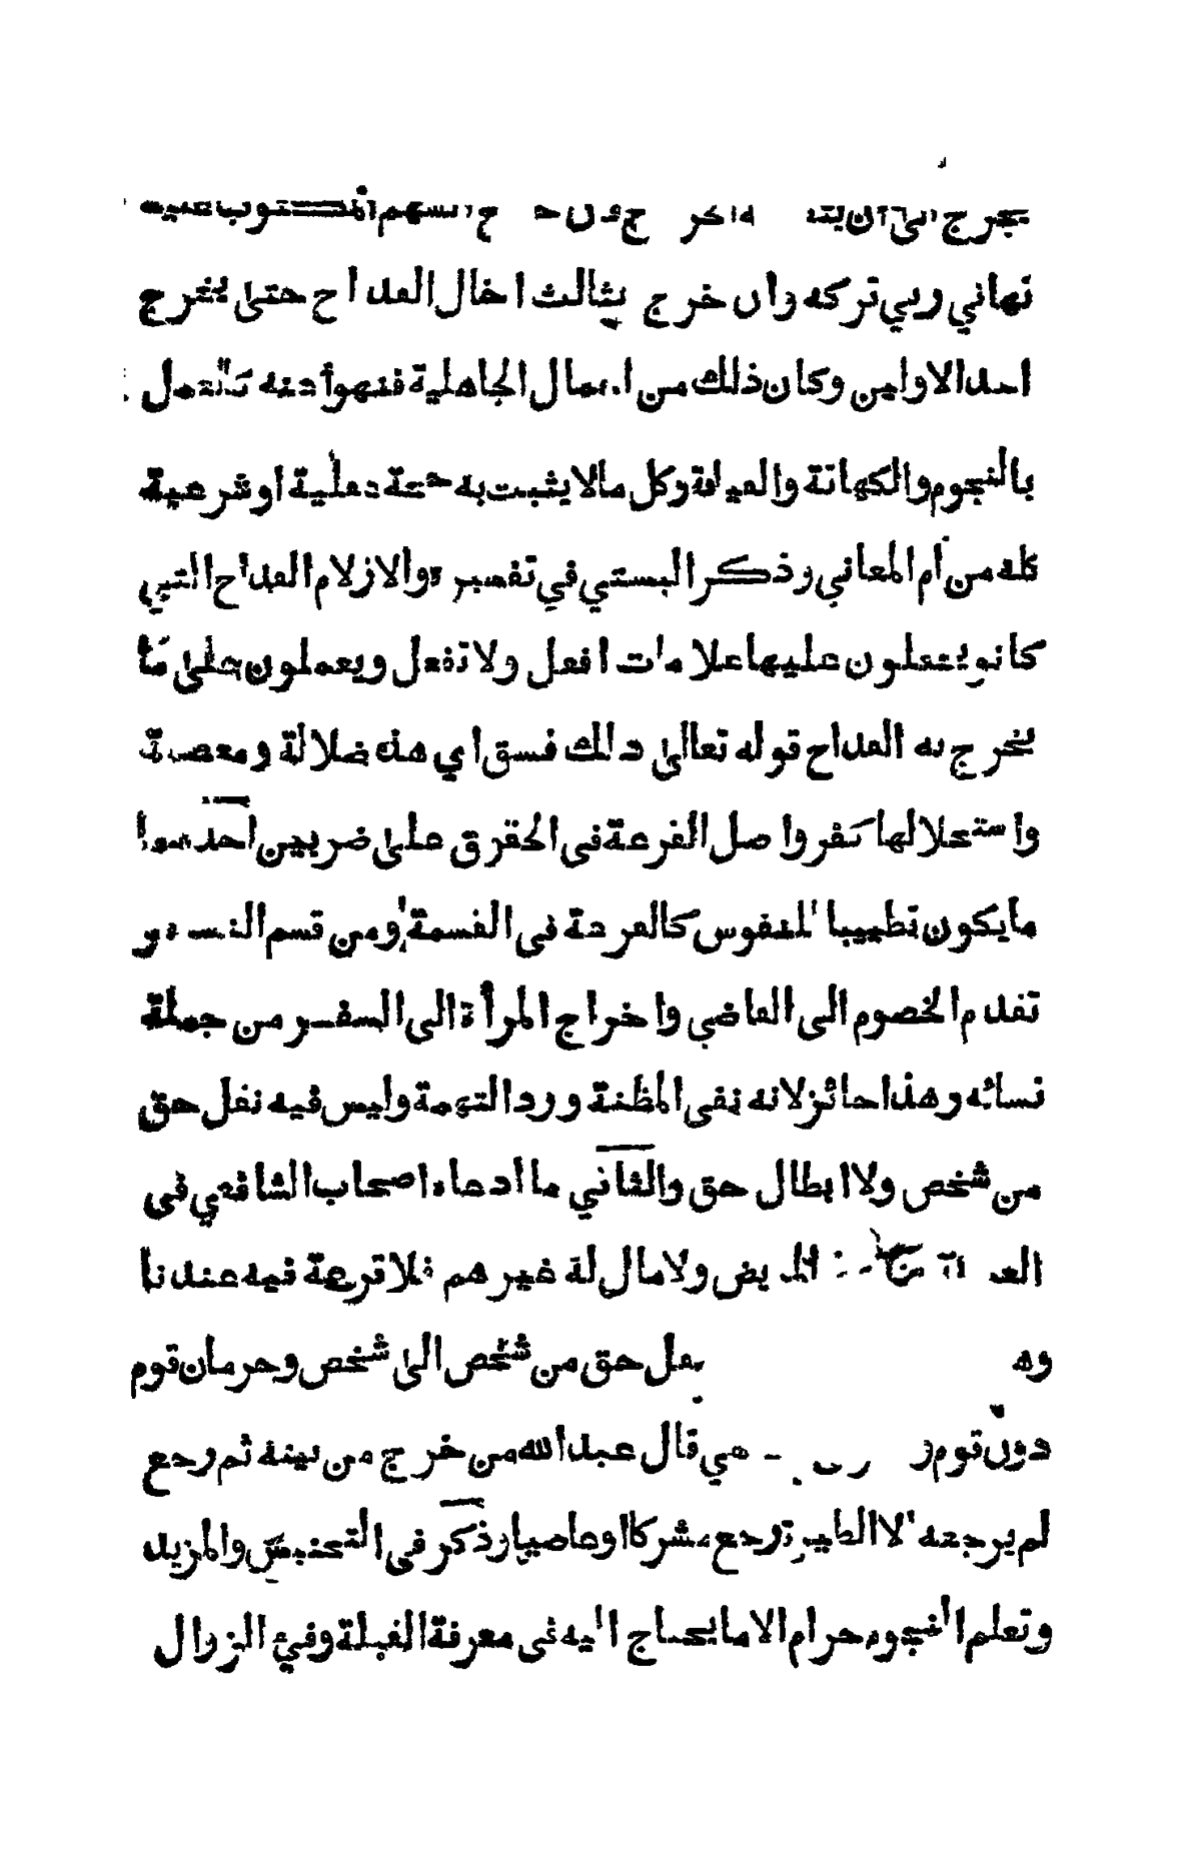 يخرج الى ان السهم المكتوب عليه
نهاني ربي تركه وان خرج الثالث اخال القداح حتى يخرج
احد الاولين وكان ذلك من اعمال الجاهلية فنهوا عنه
بالنجوم والكهانة والعيافة وكل مالا يثبت به حجة عقلية او شرعية
كله من أم المعاني وذكر البستي في تفسيره والازلام القداح التي
كانو يجعلون عليها علامات افعل ولا تفعل ويعملون على ما
يخرج به القداح قوله تعالى ذلك فسق اي هذه ضلالة ومعصية
واستحلالها كفر واصل القرعة فى الحقوق على ضربين احدهما
مايكون تطييبا للنفوس كالقرعة فى القسمة ومن قسم النسا و
تقدم الخصوم الى القاضي واخراج المرأة الى السفر من جملة
نسائه وهذا جائز لانه نفى المظنة ورد التهمة وليس فيه نقل حق
من شخص ولا ابطال حق والثاني ما أدعاه اصحاب الشافعي فى
المريض ولا مال له غيرهم فلا قرعة فيه عندنا
نقل حق من شخص الى شخص وحرمان قوم
دون قوم قال عبد الله من خرج من بيته ثم رجع
لم يرجعه الا الطير رجع مشركا او عاصيا وذكر فى التجنيس والمزيد
وتعلم النجوم حرام الا ما يحتاج اليه فى معرفة القبلة وفيء الزوال